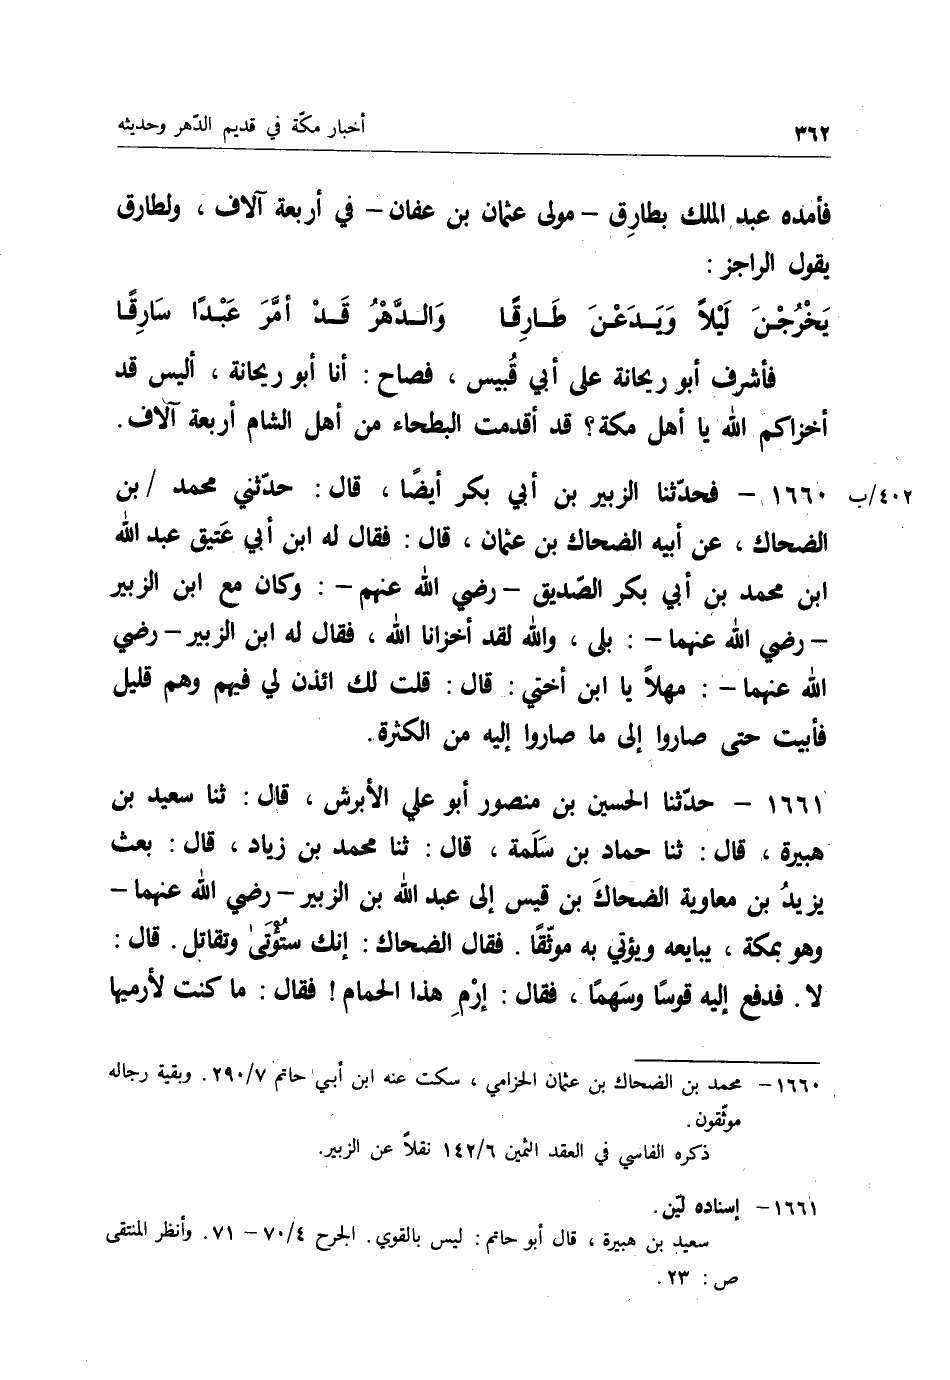 ٣٦٢ أخبار مكّة في قديم الدّهر وحديثه
فأمده عبد الملك بطارِق – مولى عثمان بن عفان – في أربعة آلاف ، ولطارق
يقول الراجز :
يَخْرُجْنَ لَيْلاً وَيَدَعْنَ طَارِقًا وَالدَّهْرُ قَدْ أمَّرَ عَبْدًا سَارِقًا
فأشرف أبو ريحانة على أبي قُبيس ، فصاح : أنا أبو ريحانة ، أليس قد
أخزاكم الله يا أهل مكة؟ قد أقدمت البطحاء من أهل الشام أربعة آلاف.
١٦٦٠ – فحدّثنا الزبير بن أبي بكر أيضًا ، قال : حدّثني محمد /بن ٤٠٢/ب
الضحاك ، عن أبيه الضحاك بن عثمان ، قال : فقال له ابن أبي عَتيق عبد الله
ابن محمد بن أبي بكر الصّديق – رضي الله عنهم – : وكان مع ابن الزبير
– رضي الله عنهما – : بلى ، والله لقد أخزانا الله ، فقال له ابن الزبير – رضي
الله عنهما – : مهلاً يا ابن أختي : قال : قلت لك ائذن لي فيهم وهم قليل
فأبيت حتى صاروا إلى ما صاروا إليه من الكثرة.
١٦٦١ – حدّثنا الحسين بن منصور أبو علي الأبرش ، قال : ثنا سعيد بن
هبيرة ، قال : ثنا حماد بن سَلَمة ، قال : ثنا محمد بن زياد ، قال : بعث
يزيدُ بن معاوية الضحاكَ بن قيس إلى عبد الله بن الزبير – رضي الله عنهما –
وهو بمكة ، يبايعه ويؤتي به موثّقًا . فقال الضحاك : إنك ستُؤْتَىٰ وتقاتل . قال :
لا . فدفع إليه قوسًا وسَهمًا ، فقال : إرْمِ هذا الحمام ! فقال : ما كنت لأرميها
١٦٦٠ – محمد بن الضحاك بن عثمان الحزامي ، سكت عنه ابن أبي حاتم ٢٩٠/٧ . وبقية رجاله
موثّقون .
ذكره الفاسي في العقد الثمين ١٤٢/٦ نقلاً عن الزبير.
١٦٦١ – إسناده ليّن .
سعيد بن هبيرة ، قال أبو حاتم : ليس بالقوي . الجرح ٧٠/٤ – ٧١ . وأنظر المنتقى
ص : ٢٣ .